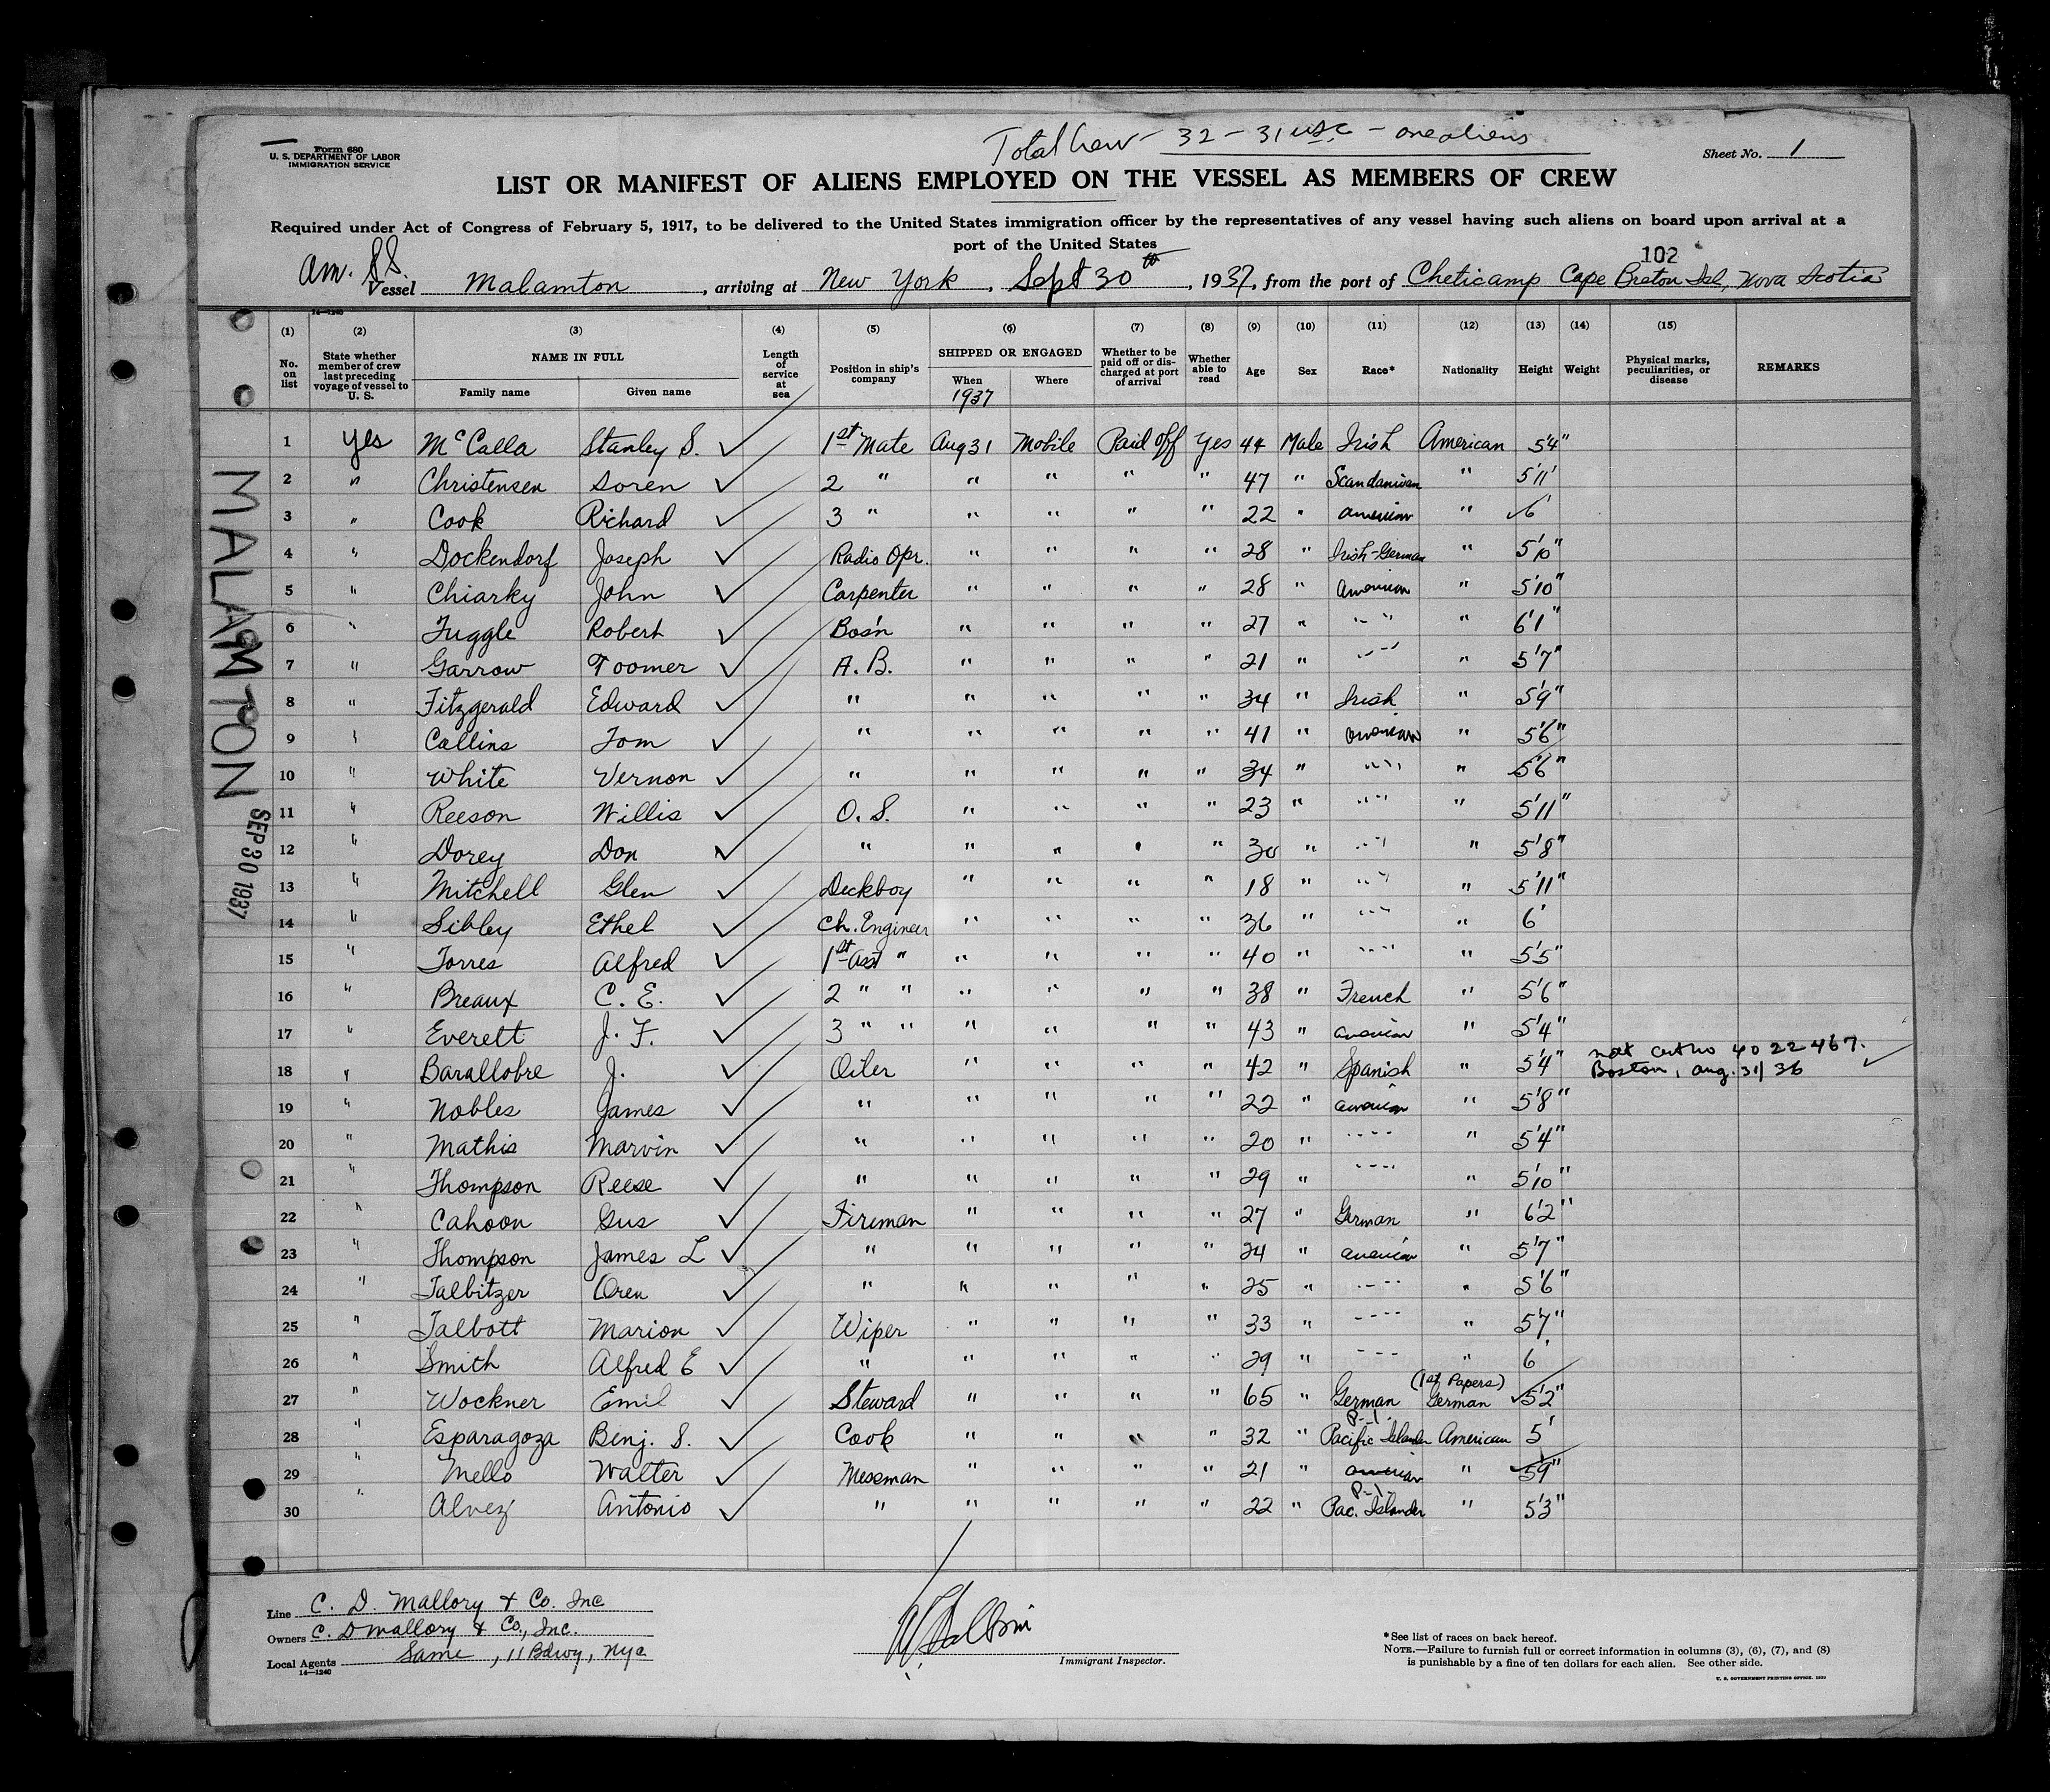 Total Crew - 32 - 31 USC - one aliens
Form 680
U. S. DEPARTMENT OF LABOR
IMMIGRATION SERVICE
Sheet No. 1
LIST OR MANIFEST OF ALIENS EMPLOYED ON THE VESSEL AS MEMBERS OF CREW
Required under Act of Congress of February 5, 1917, to be delivered to the United States immigration officer by the representatives of any vessel having such aliens on board upon arrival at a
port of the United States
102
Am. SS. Vessel Malamton, arriving at New York, Sept 30th, 1937, from the port of Cheticamp Cape Breton Isl, Nova Scotia
14—1240
(1) (2) (3) (4) (5) (6) (7) (8) (9) (10) (11) (12) (13) (14) (15)
No. on list | State whether member of crew last preceding voyage of vessel to U. S. | NAME IN FULL | Family name | Given name | Length of service at sea | Position in ship's company | SHIPPED OR ENGAGED | When 1937 | Where | Whether to be paid off or discharged at port of arrival | Whether able to read | Age | Sex | Race* | Nationality | Height | Weight | Physical marks, peculiarities, or disease | REMARKS
1 Yes McCalla Stanley S. ✓ 1st Mate Aug 31 Mobile Paid Off Yes 44 Male Irish American 5'4"
2 " Christensen Soren ✓ 2 " " " " " 47 " Scandanivan " 5'11'
3 " Cook Richard ✓ 3 " " " " " 22 " American " ✓6'
4 " Dockendorf Joseph ✓ Radio Opr. " " " " 28 " Irish-German " 5'10"
5 " Chiarky John ✓ Carpenter " " " " 28 " American " 5'10"
6 " Fuggle Robert ✓ Bos'n " " " " 27 " " " 6'1"
7 " Garrow Toomer ✓ A. B. " " " " 21 " " " 5'7"
8 " Fitzgerald Edward ✓ " " " " " 34 " Irish " 5'9"
9 " Collins Tom ✓ " " " " " 41 " American " 5'6"
10 " White Vernon ✓ " " " " " 34 " " " 5'6"
11 " Reeson Willis ✓ O. S. " " " " 23 " " " 5'11"
12 " Dorey Don ✓ " " " " " 30 " " " 5'8"
13 " Mitchell Glen ✓ Deckboy " " " " 18 " " " 5'11"
14 " Sibley Ethel ✓ Ch. Engineer " " " " 36 " " " 6'
15 " Torres Alfred ✓ 1st Asst " " " " " 40 " " " 5'5"
16 " Breaux C. E. ✓ 2 " " " " " " 38 " French " 5'6"
17 " Everett J. F. ✓ 3 " " " " " " 43 " American " 5'4"
18 " Barallobre J. ✓ Oiler " " " " 42 " Spanish " 5'4" Nat Cert No 4022467. Boston, Aug. 31/36 ✓
19 " Nobles James ✓ " " " " " 22 " American " 5'8"
20 " Mathis Marvin ✓ " " " " " 20 " " " 5'4"
21 " Thompson Reese ✓ " " " " " 29 " " " 5'10"
22 " Cahoon Gus ✓ Fireman " " " " 27 " German " 6'2"
23 " Thompson James L ✓ " " " " " 24 " American " 5'7"
24 " Talbitzer Oren ✓ " " " " " 25 " " " 5'6"
25 " Talbott Marion ✓ Wiper " " " " 33 " " " 5'7"
26 " Smith Alfred E ✓ " " " " " 29 " " " 6'
27 " Wockner Emil ✓ Steward " " " " 65 " German (1st Papers) German ✓5'2"
28 " Esparagoza Benj. S. ✓ Cook " " " " 32 " P-I. Pacific Islander American 5'
29 " Mello Walter ✓ Messman " " " " 21 " American " 5'9"
30 " Alvez Antonio ✓ " " " " " 22 " P-I- Pac. Islander " 5'3"
MALAMTON
SEP 30 1937
Line C. D. Mallory & Co. Inc
Owners C. D Mallory & Co., Inc.
Local Agents Same, 11 Bdwy, Nyc
14—1240
Immigrant Inspector.
*See list of races on back hereof.
NOTE.—Failure to furnish full or correct information in columns (3), (6), (7), and (8)
is punishable by a fine of ten dollars for each alien. See other side.
U. S. GOVERNMENT PRINTING OFFICE